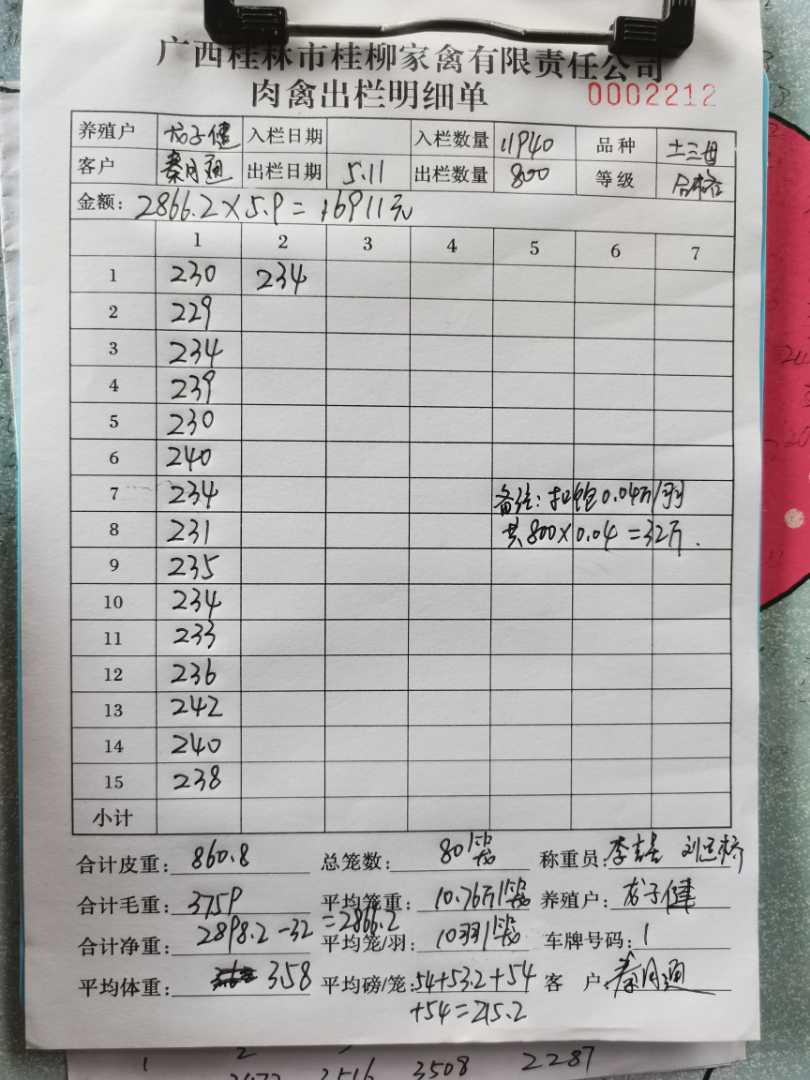 广西桂林市桂柳家禽有限责任公司
肉禽出栏明细单 0002212
养殖户 龙子健 入栏日期 入栏数量 11940 品种 土三母
客户 秦月通 出栏日期 5.11 出栏数量 800 等级 合格
金额: 2866.2×5.9=16911元
1 2 3 4 5 6 7
1 230 234
2 229
3 234
4 239
5 230
6 240
7 234 备注: 扣饱0.04斤/羽
8 231 共800×0.04=32斤.
9 235
10 234
11 233
12 236
13 242
14 240
15 238
小计
合计皮重: 860.8 总笼数: 80 称重员: 李
合计毛重: 3759 平均笼重: 10.76斤/ 养殖户: 龙子健
合计净重: 2898.2-32=2866.2 平均笼/羽: 10羽/ 车牌号码: 1
平均体重: 358 平均磅/笼: 54+53.2+54 客户: 秦月通
+54=215.2
2287
3516 3508